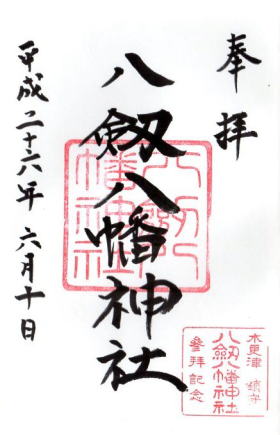 奉拝
八剱八幡神社
平成二十六年六月十日
八剱八幡神社
木更津 鎮守
八剱八幡神社
参拝記念